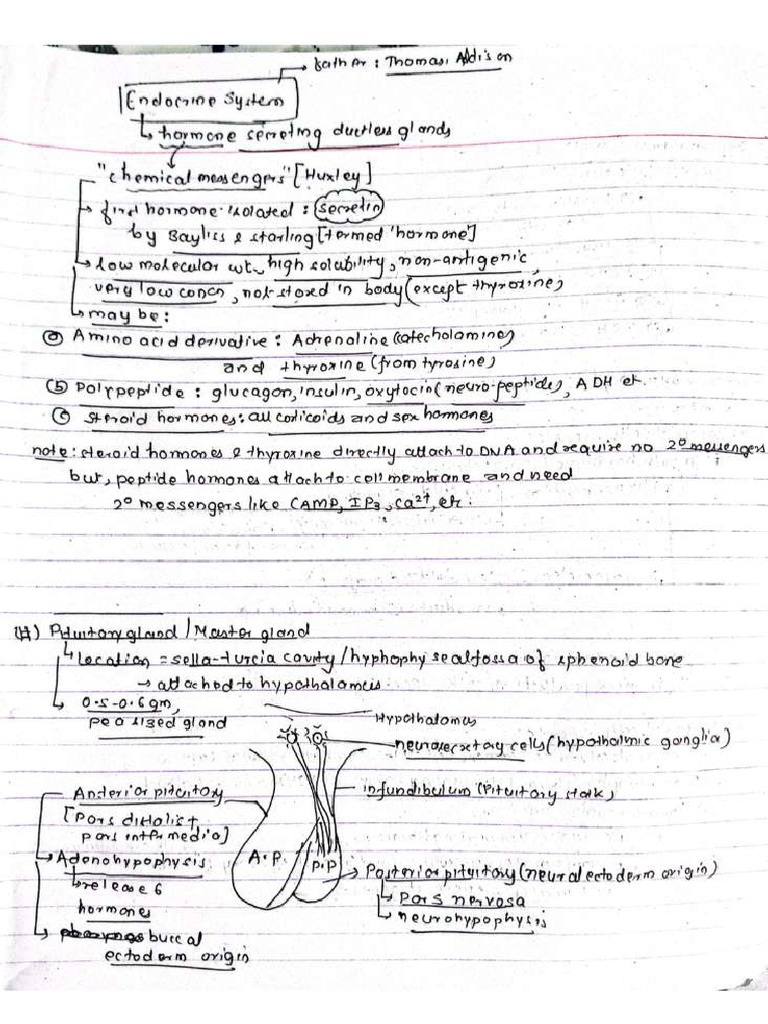 Father : Thomas Addison
Endocrine System
↳ hormone secreting ductless glands
"chemical messengers" [Huxley]
→ first hormone isolated : secretin
by Bayliss & starling [termed 'hormone']
→ low molecular wt., high solubility, non-antigenic,
very low concn, not stored in body (except thyroxine)
→ may be :
(a) Amino acid derivative : Adrenaline (catecholamine)
and thyroxine (from tyrosine)
(b) Polypeptide : glucagon, insulin, oxytocin (neuro-peptide), ADH etc.
(c) Steroid hormones : all corticoids and sex hormones
note : steroid hormones & thyroxine directly attach to DNA and require no 2° messengers
but, peptide hormones attach to cell membrane and need
2° messengers like CAMP, IP3, Ca2+, etc.
(#) Pituitary gland / Master gland
↳ location = sella-turcia cavity / hyphophysealfossa of sphenoid bone
→ attached to hypothalamus.
↳ 0.5-0.6 gm,
pea sized gland
Hypothalamus
neurosecretary cells (hypothalmic ganglia)
Anterior pituitary
infundibulum (Pituitary stalk)
[Pars distalist
pars intermedia]
A.P.
P.P
→ Adenohypophysis
Posterior pituitary (neural ectoderm origin)
↳ release 6
hormones
↳ Pars nervosa
↳ neurohypophysis
↳ buccal
ectoderm origin